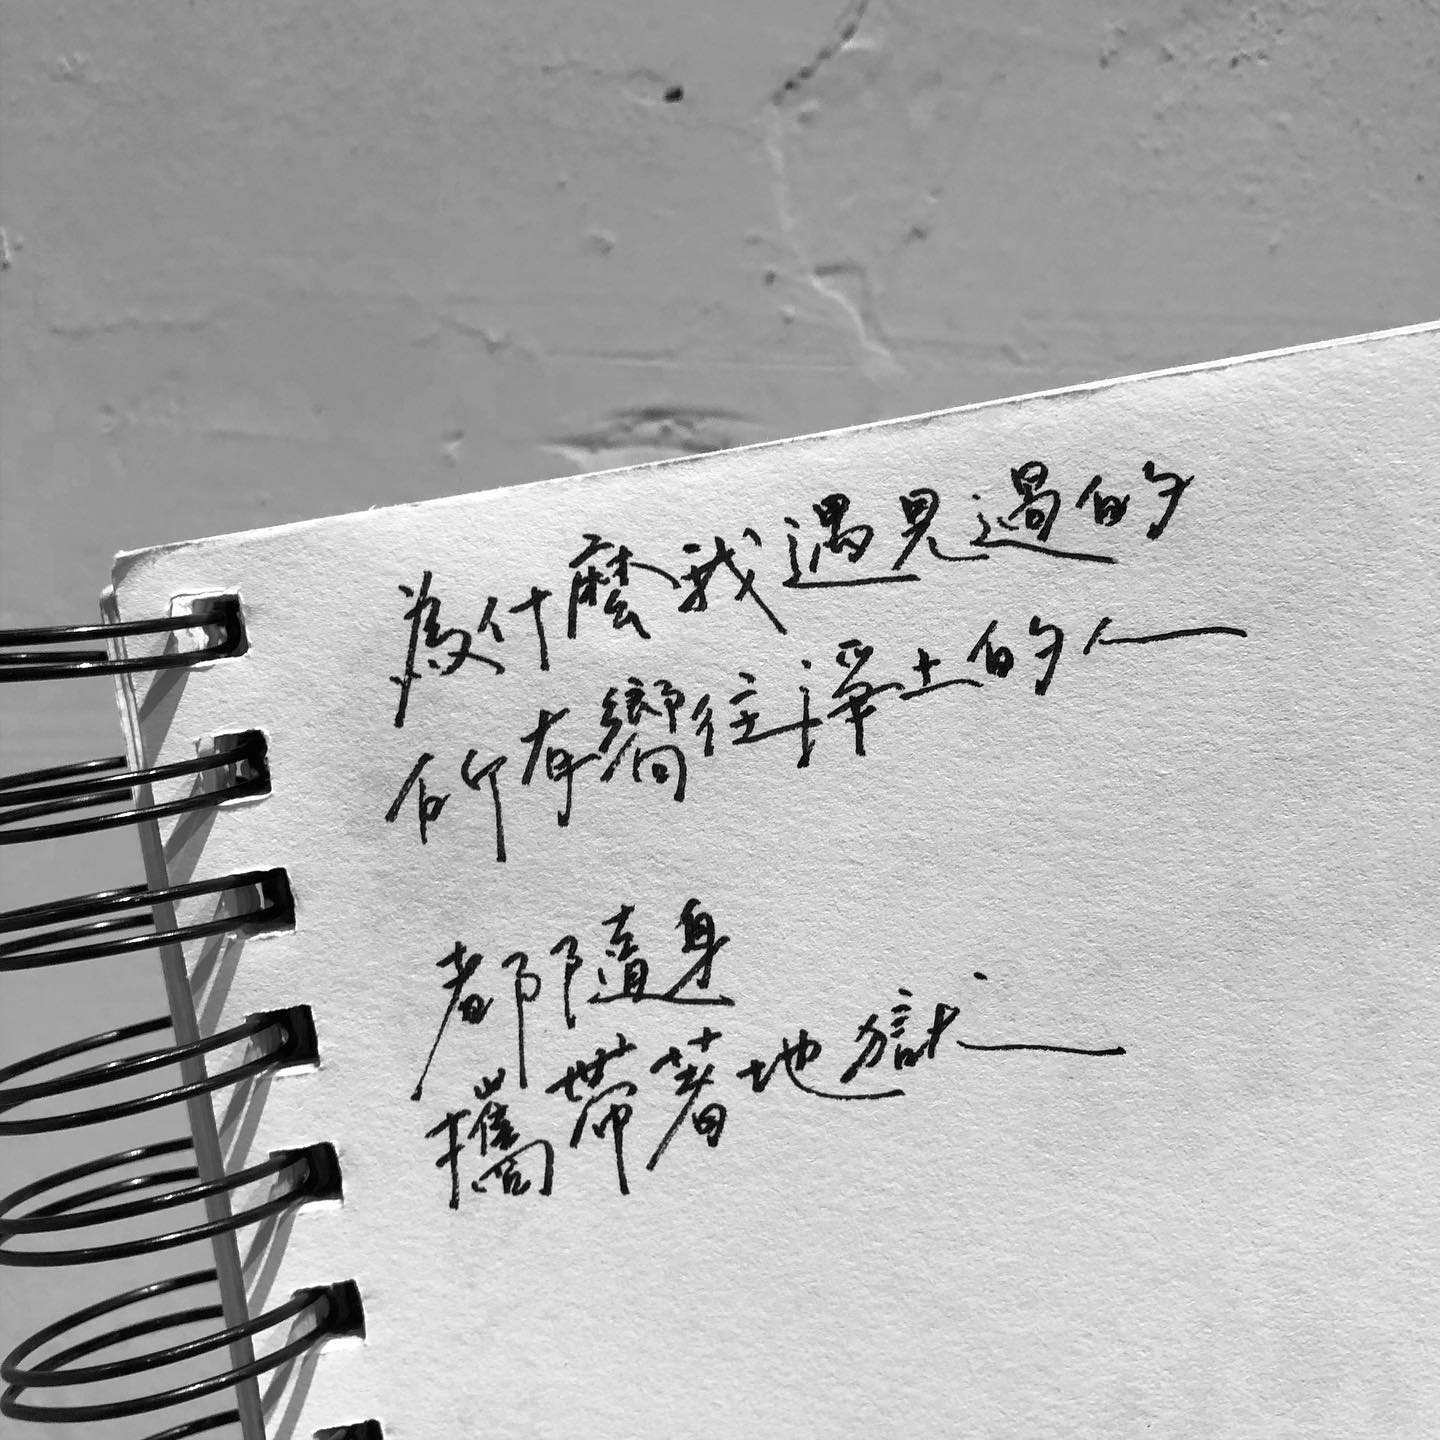 為什麼我遇見過的
所有嚮往淨土的人
都隨身
攜帶著地獄